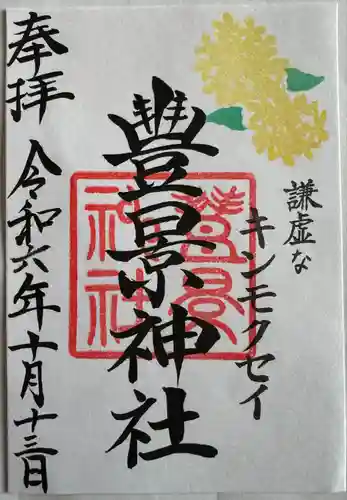 謙虚な
キンモクセイ
豊景神社
豊景神社
奉拝
令和六年十月十三日